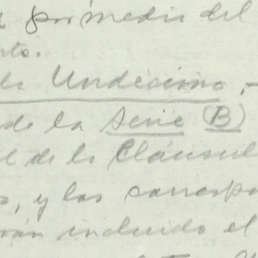 por medio del
to.
la Undécima,-
de la Serie (B)
l de la Cláusul
s, y las corresp
rán incluido el